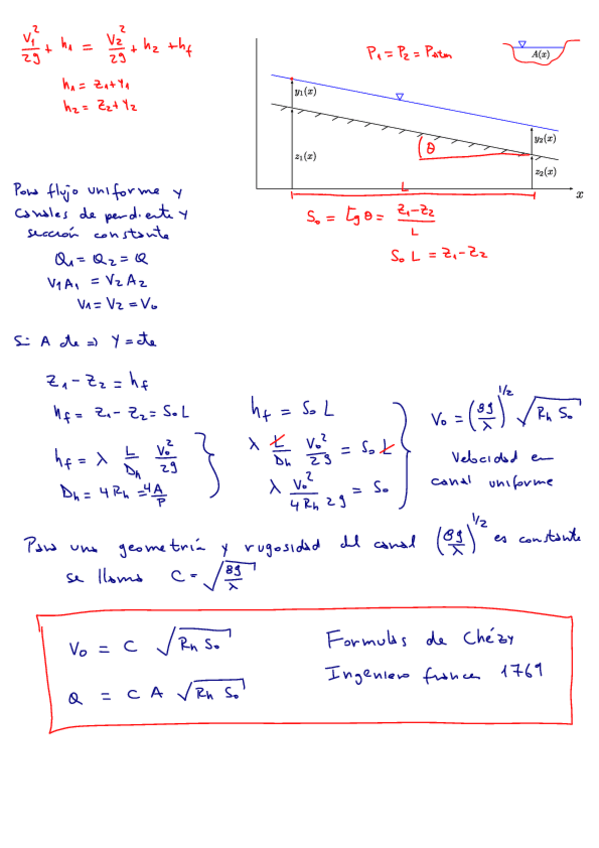 V₁²/2g + h₁ = V₂²/2g + h₂ + hf
h₁ = z₁ + y₁
h₂ = z₂ + y₂
P₁ = P₂ = Patm
A(x)
y₁(x)
z₁(x)
θ
y₂(x)
z₂(x)
L
x
S₀ = tg θ = (z₁ - z₂)/L
S₀ L = z₁ - z₂
Para flujo uniforme y
canales de pendiente y
sección constante
Q₁ = Q₂ = Q
V₁A₁ = V₂A₂
V₁ = V₂ = V₀
Si A cte ⇒ Y = cte
z₁ - z₂ = hf
hf = z₁ - z₂ = S₀ L
hf = λ L/Dh V₀²/2g
Dh = 4Rh = 4A/P
hf = S₀ L
λ L/Dh V₀²/2g = S₀ L
λ V₀²/(4Rh 2g) = S₀
V₀ = (8g/λ)^1/2 √(Rh S₀)
Velocidad en
canal uniforme
Para una geometría y rugosidad del canal (8g/λ)^1/2 es constante
se llama C = √(8g/λ)
V₀ = C √(Rh S₀)
Q = C A √(Rh S₀)
Formulas de Chézy
Ingeniero frances 1769